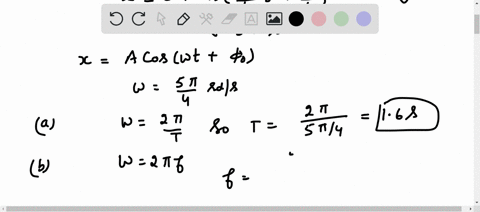 x = A Cos(ωt + ϕ₀)
ω = 5π/4 rad/s
(a) ω = 2π/T so T = 2π/(5π/4) = 1.6 s
(b) ω = 2πf
f =